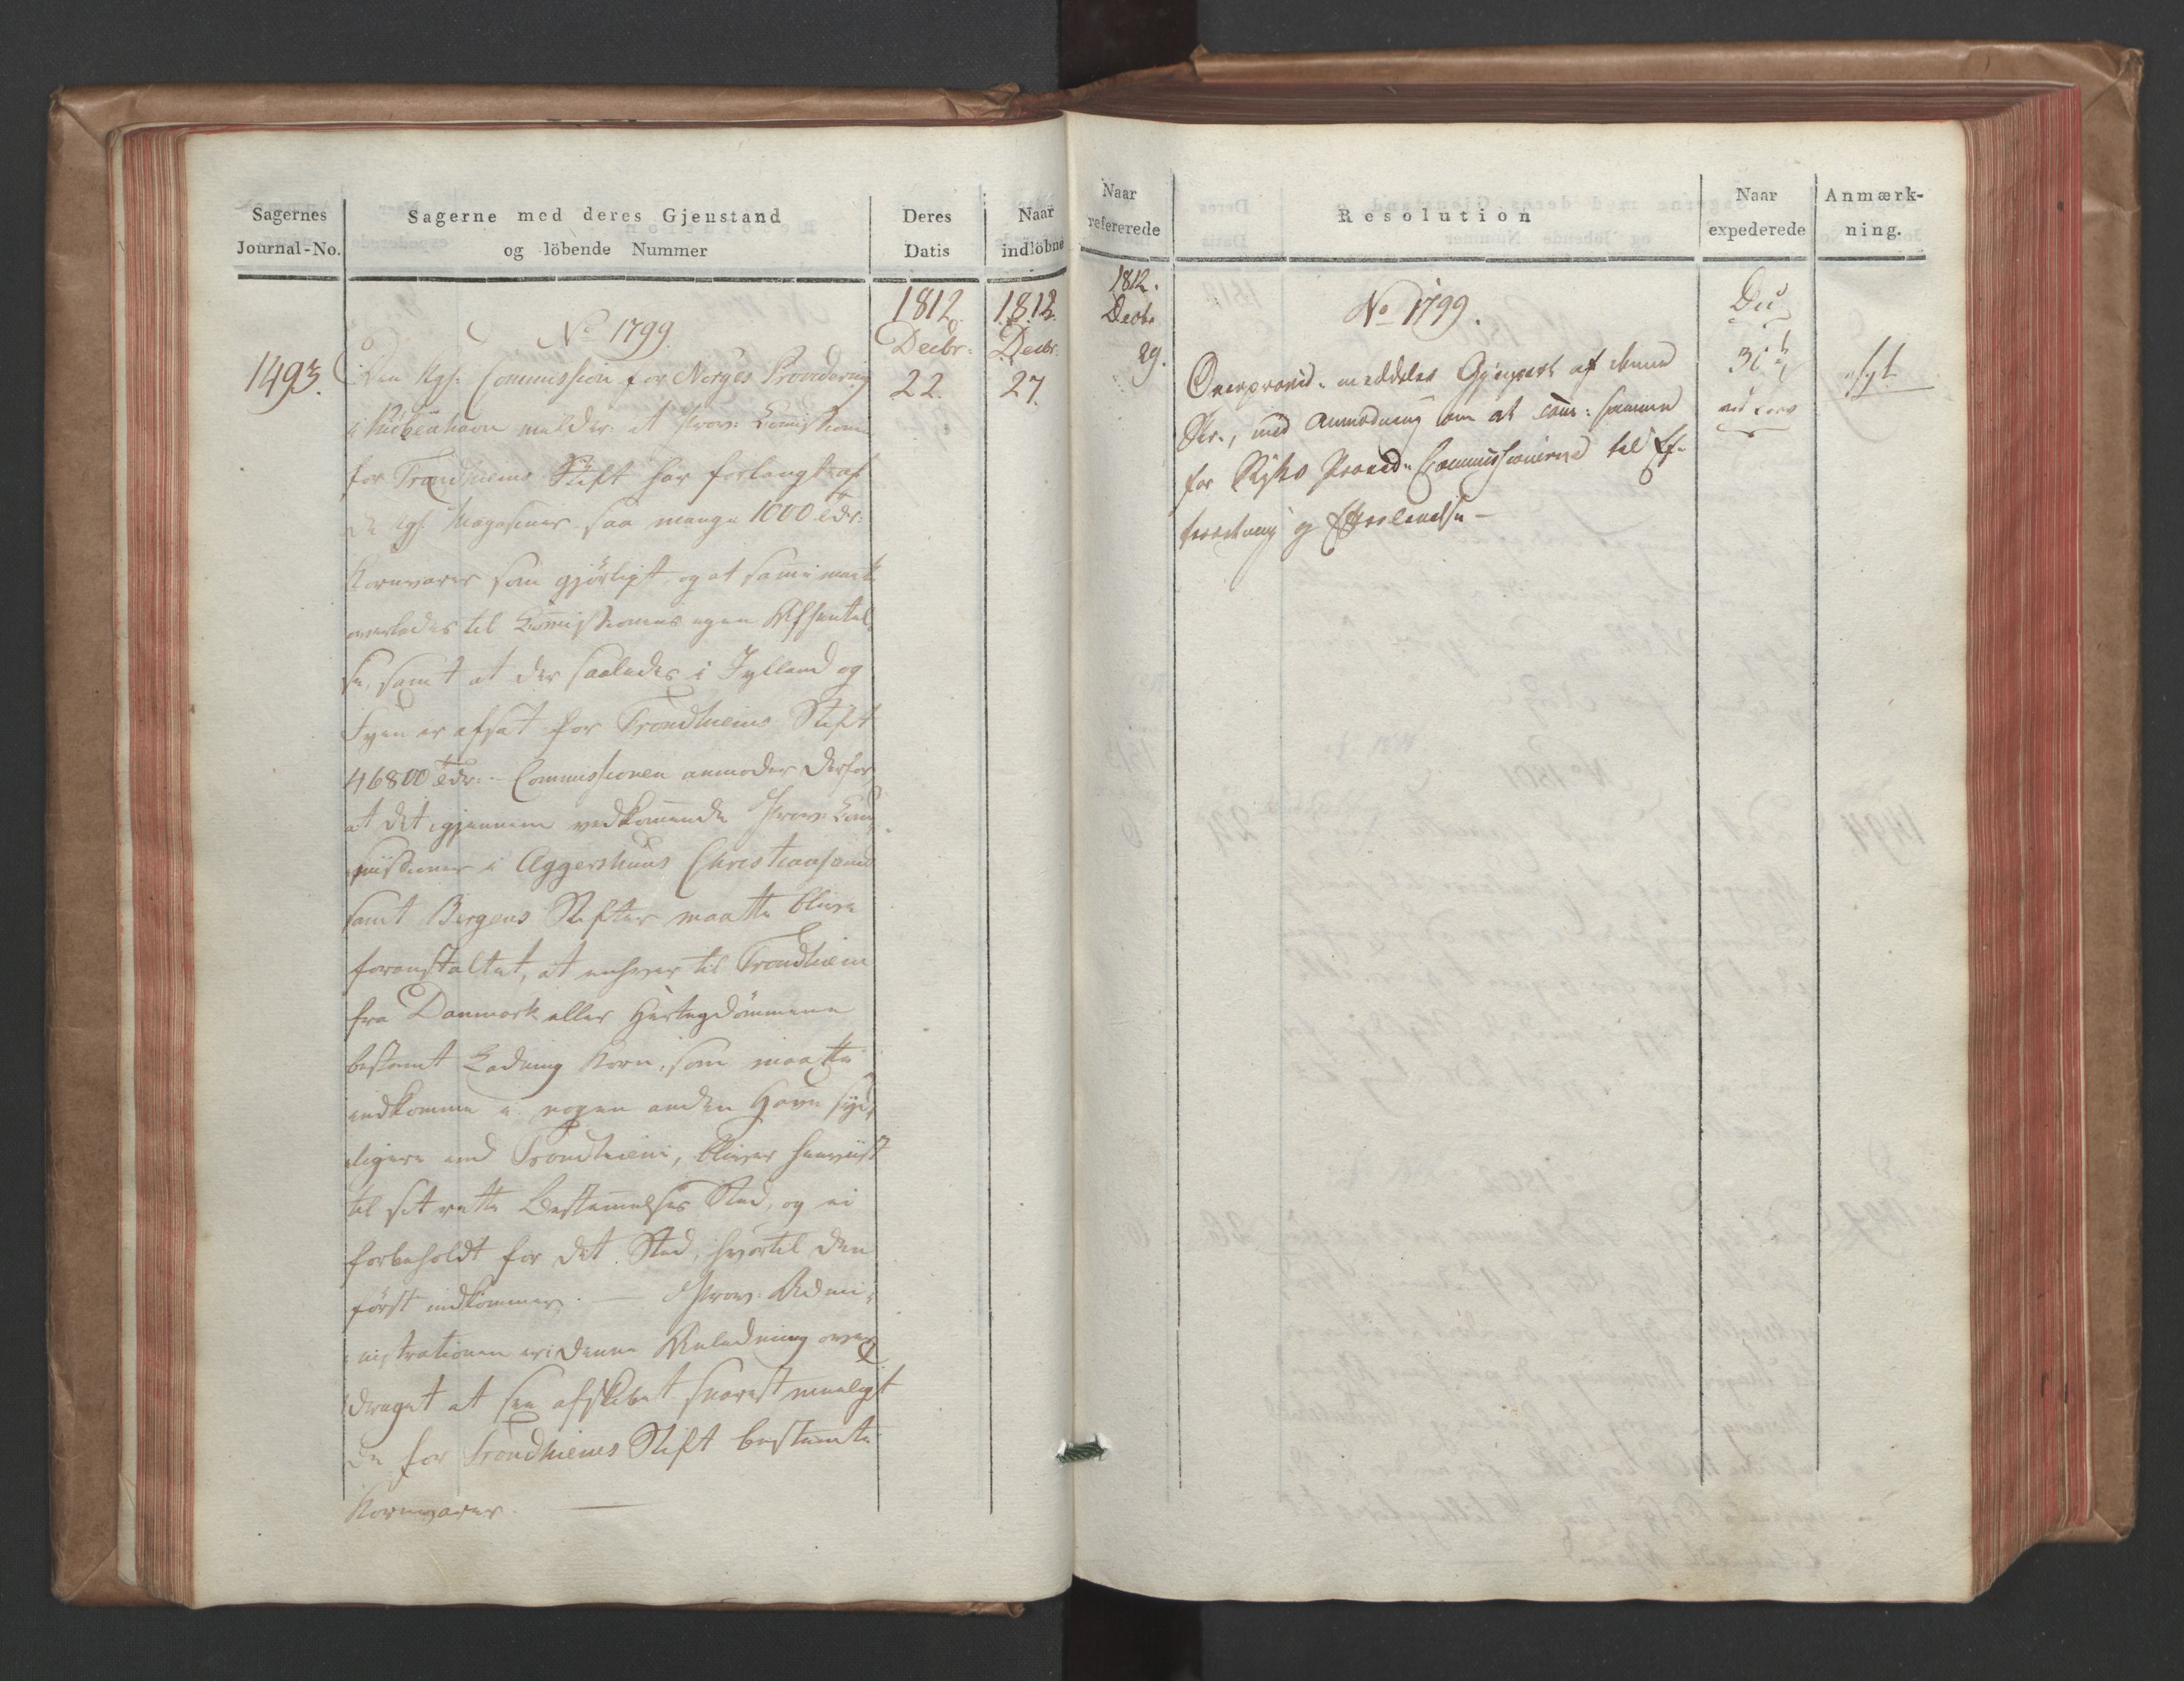 Sagernes
Journal-No.
Sagerne med deres Gjenstand
og löbende Nummer
Deres
Datis
Naar
indlöbne
1812.
Decbr.
22.
1812.
Decbr.
27.
No 1799.
1493.
Den Kgl: Commission for Norges Providering
i Kiöbenhavn melder: at Prov: Comissionen
for Trondhiems Stift har forlangt af
de kgl. Magasiner saa mange 1000 Tdr:
Kornvarer som gjörligt, og at samme maatte
overlades til Comissionens egen Afhentel-
se, samt at der saaledes i Jylland og
Fyen er afsat for Trondhiems Stift
46800 Tdr: - Commissionen anmoder derfor
at det igjennem vedkommende Prov: Com-
missioner i Aggershuus Christiansand
samt Bergens Stifter maatte blive
foranstaltet, at enhver til Trondhiem
fra Danmark eller Hertugdömmene
bestemt Ladning Korn, som maatte
indkomme i nogen anden Havn syd-
ligere end Trondhiem, bliver henviist
til sit rette Bestemmelses Sted, og ei
forbeholdt for det Sted, hvortil den
först indkommer. — Prov: Admi-
nistrationen er i denne Anledning over
draget at see afskibet snarest mueligt
de for Trondhiems Stift bestemte
Kornvarer. —
Naar
refererede
Resolution
Naar
expederede
Anmærk-
ning.
1812.
Decbr.
29.
No 1799.
Overprovid: meddeles Gjenpart af denne
Skr., med Anmodning om at samme
for Stifts Provid: Commissionerne til Ef-
terretning og Efterlevelse —
30